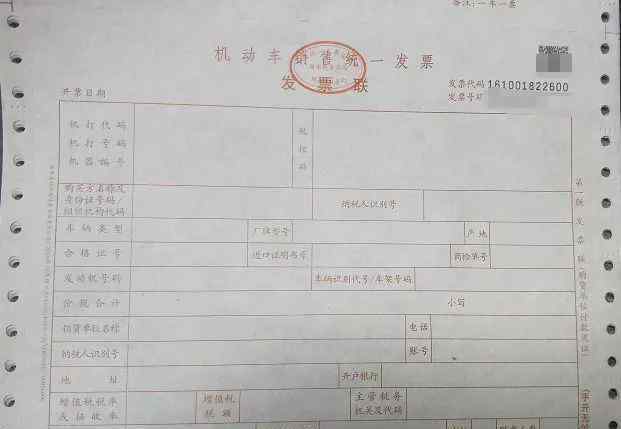 备注:一车一票
机动车销售统一发票
发票联
发票代码 161001822600
发票号码
开票日期
机打代码
机打号码
机器编号
税控码
购买方名称及
身份证号码/
组织机构代码
纳税人识别号
车辆类型
厂牌型号
产地
合格证号
进口证明书号
商检单号
发动机号码
车辆识别代号/车架号码
价税合计
小写
销货单位名称
电话
纳税人识别号
账号
地 址
开户银行
增值税税率
或征收率
增值税
税额
主管税务
机关及代码
第一联 发票联(购货单位付款凭证)
(手开无